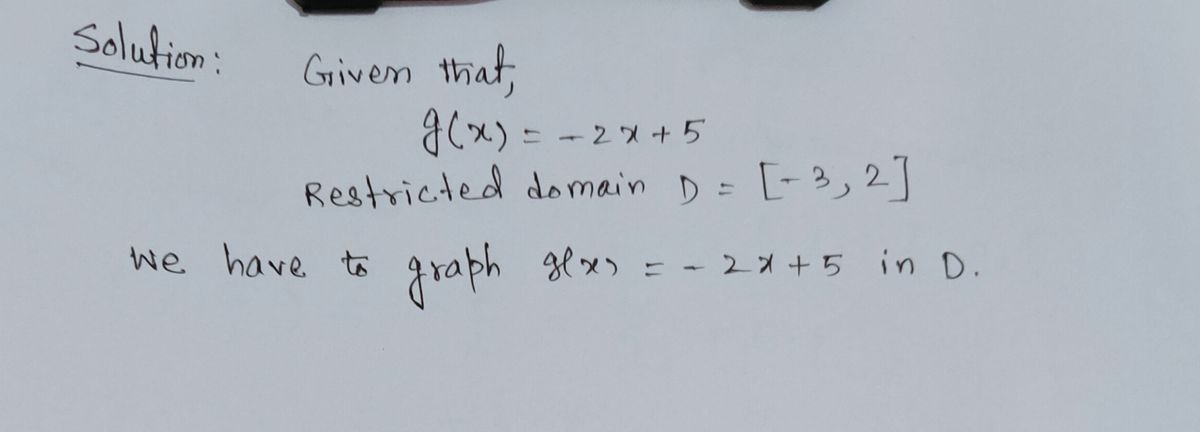 Solution:
Given that,
g(x) = -2x+5
Restricted domain D = [-3, 2]
We have to graph g(x) = -2x+5 in D.